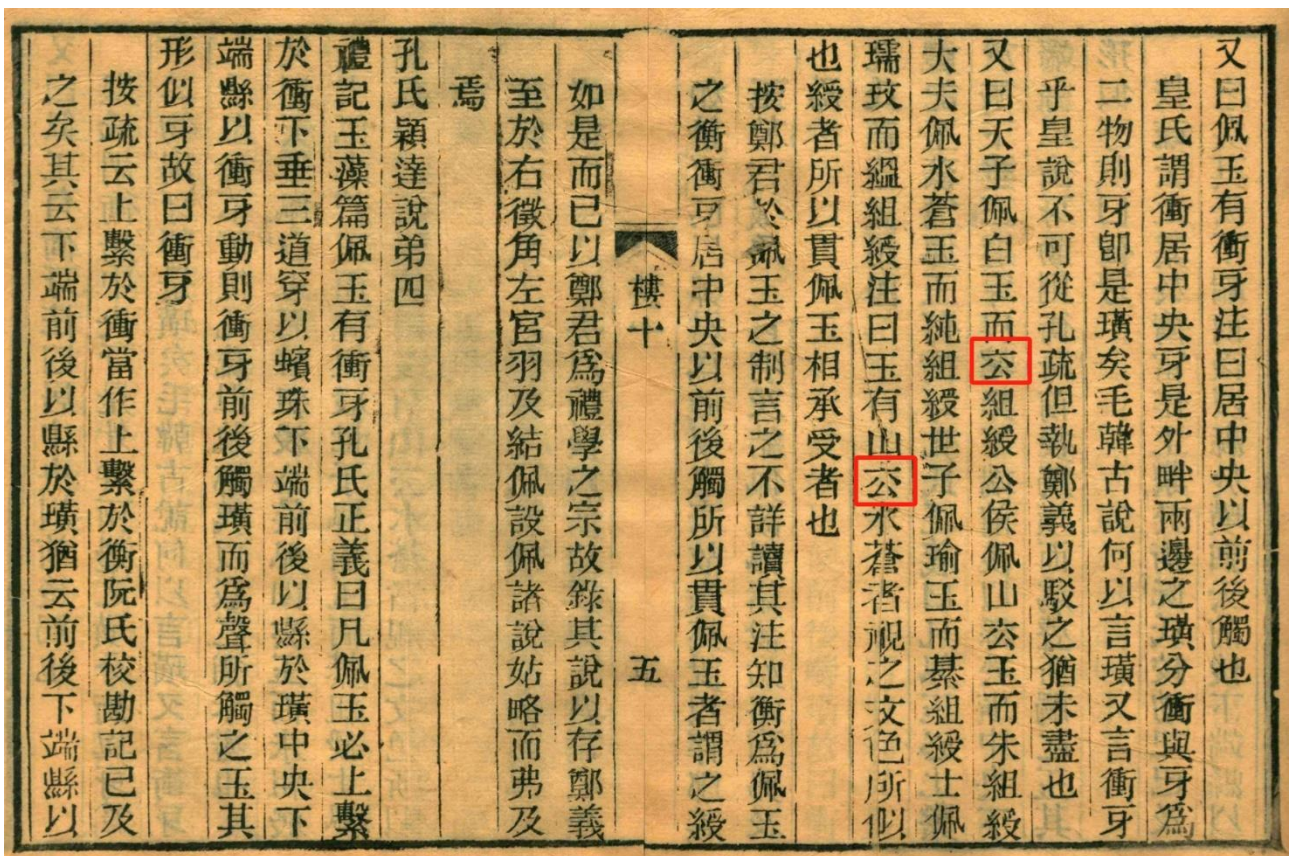 又曰佩玉有衝牙注曰居中央以前後觸也
皇氏謂衝居中央牙是外畔兩邊之璜分衝與牙爲
二物則牙卽是璜矣毛韓古說何以言璜又言衝牙
乎皇說不可從孔疏但執鄭義以駁之猶未盡也
又曰天子佩白玉而玄組綬公侯佩山玄玉而朱組綬
大夫佩水蒼玉而純組綬世子佩瑜玉而綦組綬士佩
瓀玟而縕組綬注曰玉有山玄水蒼者視之文色所似
也綬者所以貫佩玉相承受者也
按鄭君於佩玉之制言之不詳讀其注知衡爲佩玉
之衡衝牙居中央以前後觸所以貫佩玉者謂之綬
樓十
五
如是而已以鄭君爲禮學之宗故錄其說以存鄭義
至於右徵角左宮羽及結佩設佩諸說姑略而弗及
焉
孔氏穎達說弟四
禮記玉藻篇佩玉有衝牙孔氏正義曰凡佩玉必上繫
於衝下垂三道穿以蠙珠下端前後以縣於璜中央下
端縣以衝牙動則衝牙前後觸璜而爲聲所觸之玉其
形似牙故曰衝牙
按疏云上繫於衝當作上繫於衡阮氏校勘記已及
之矣其云下端前後以縣於璜猶云前後下端縣以